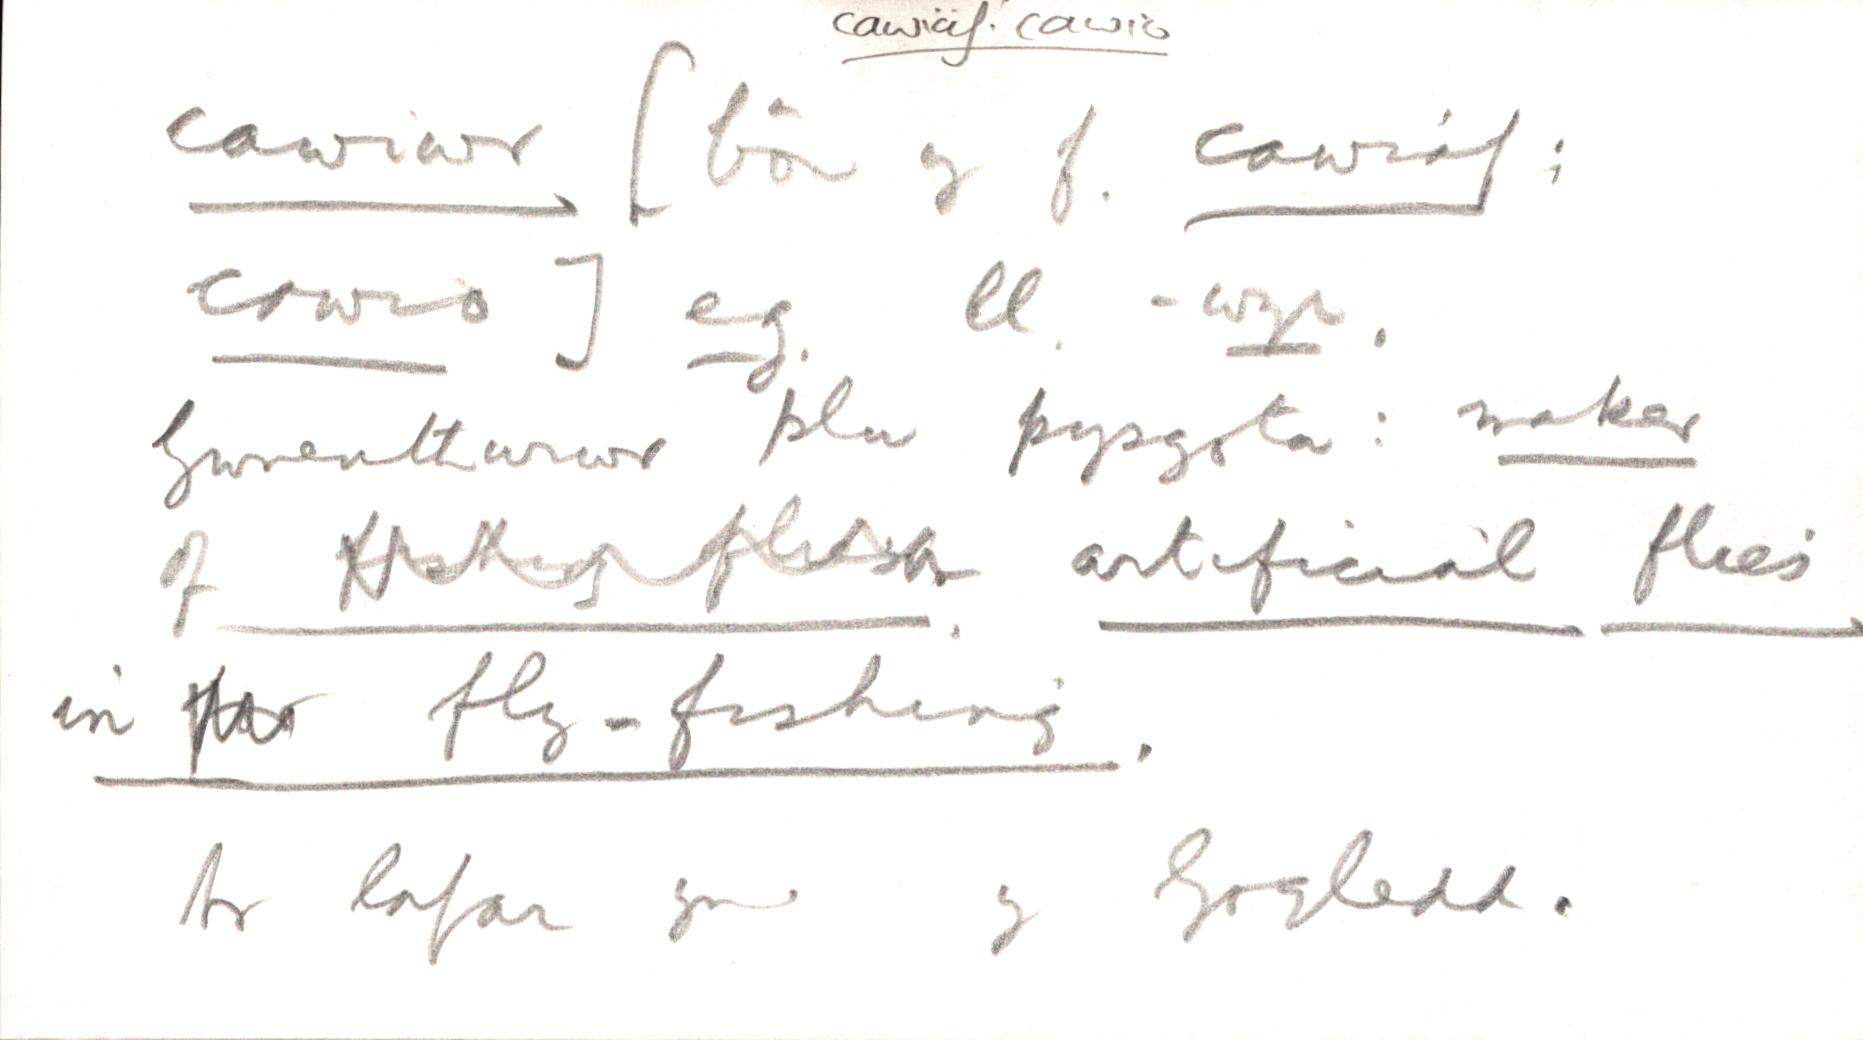 cawiaf: cawio
cawiwr [bôn y f. cawiaf:
cawio] eg. ll. -wyr.
Gwneuthurwr plu pysgota: maker
of artificial flies
in fly-fishing.
Ar lafar yn y Gogledd.